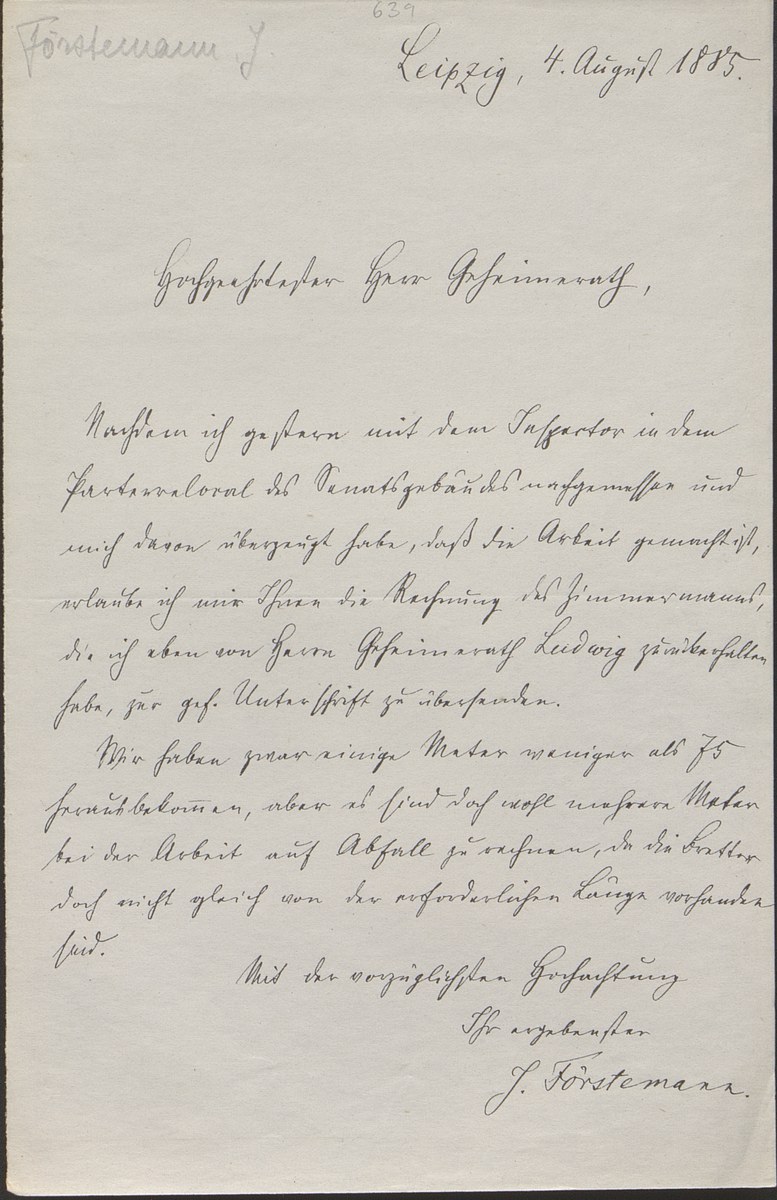 639
Förstemann, J.
Leipzig, 4. August 1885.
Hochgeehrtester Herr Geheimerath,
Nachdem ich gestern mit dem Inspector in dem
Parterrelocal des Senatsgebäudes nachgemessen und
mich davon überzeugt habe, daß die Arbeit gemacht ist,
erlaube ich mir Ihnen die Rechnung des Zimmermanns,
die ich eben von Herrn Geheimerath Ludwig zurückerhalten
habe, zur gef. Unterschrift zu übersenden.
Wir haben zwar einige Meter weniger als 75
herausbekom̄en, aber es sind doch wohl mehrere Meter
bei der Arbeit auf Abfall zu rechnen, da die Bretter
doch nicht gleich von der erforderlichen Länge vorhanden
sind.
Mit der vorzüglichsten Hochachtung
Ihr ergebenster
J. Förstemann.